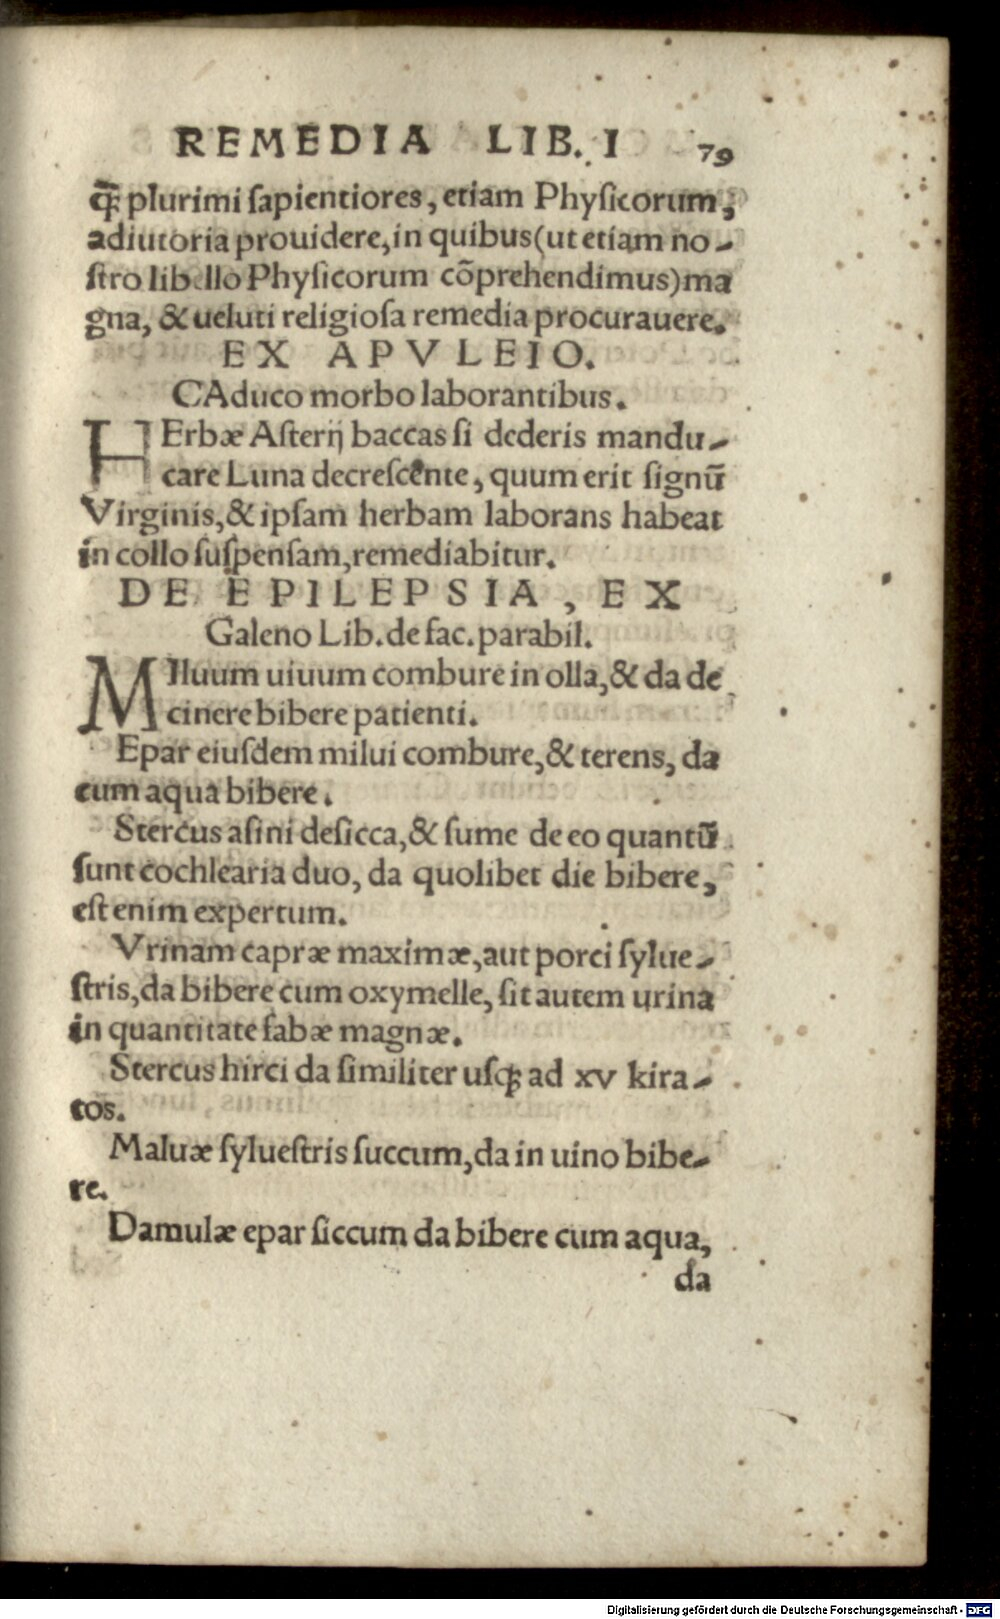 REMEDIA LIB. I 79
q̃ꝫ plurimi ſapientiores, etiam Phyſicorum,
adiutoria prouidere, in quibus (ut etiam no-
ſtro libello Phyſicorum cõprehendimus) ma
gna, & ueluti religioſa remedia procurauere.
EX APVLEIO.
CAduco morbo laborantibus.
HErbæ Aſterij baccas ſi dederis mandu-
care Luna decreſcente, quum erit ſignũ
Virginis, & ipſam herbam laborans habeat
in collo ſuſpenſam, remediabitur.
DE EPILEPSIA, EX
Galeno Lib. de fac. parabil.
MIluum uiuum combure in olla, & da de
cinere bibere patienti.
Epar eiuſdem milui combure, & terens, da
cum aqua bibere.
Stercus aſini deſicca, & ſume de eo quantũ
ſunt cochlearia duo, da quolibet die bibere,
eſt enim expertum.
Vrinam capræ maximæ, aut porci ſylue-
ſtris, da bibere cum oxymelle, ſit autem urina
in quantitate fabæ magnæ.
Stercus hirci da ſimiliter uſqꝫ ad xv kira-
tos.
Maluæ ſylueſtris ſuccum, da in uino bibe-
re.
Damulæ epar ſiccum da bibere cum aqua,
da
Digitalisierung gefördert durch die Deutsche Forschungsgemeinschaft - DFG